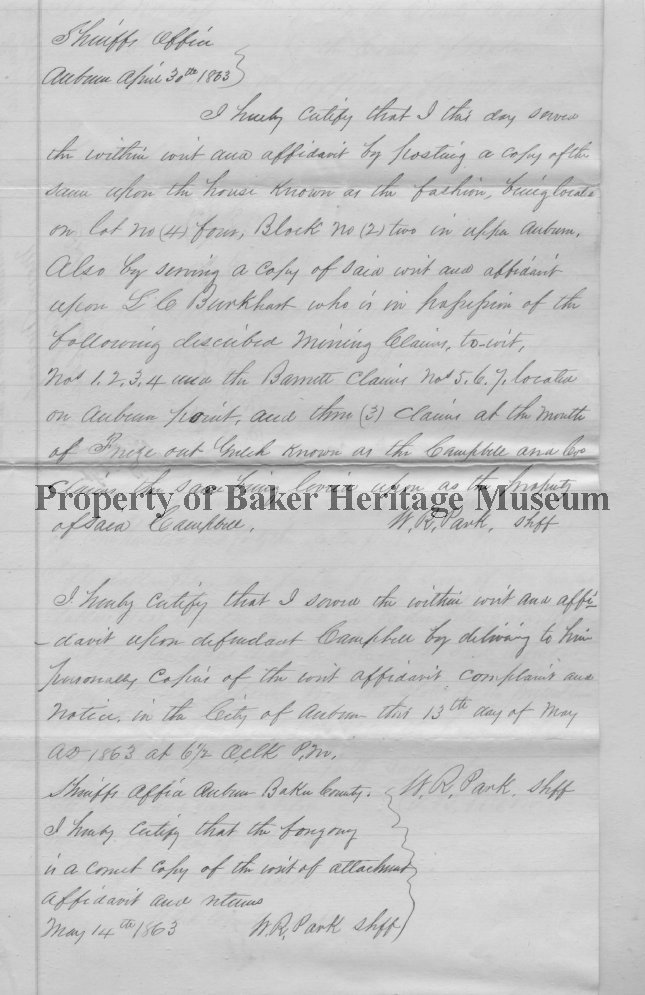 Sheriffs Office
Auburn April 30th 1863
I hereby certify that I this day served
the within writ and affidavit by posting a copy of the
same upon the house known as the fashion, being located
on lot no (4) four, Block no (2) two in upper Auburn.
Also by serving a copy of said writ and affidavit
upon L C Burkhart who is in possession of the
following described mining Claims, to-wit,
Nos 1.2.3.4 and the Barrett claims Nos 5.6.7. located
on Auburn point, and three (3) claims at the mouth
of Freeze out Gulch known as the Campbell and Co
claims the same being levied upon as the property
Property of Baker Heritage Museum
of said Campbell. W. R. Park. Shff
I hereby certify that I served the within writ and affi-
-davit upon defendant Campbell by delivering to him
personally copies of the writ affidavit complaint and
notice. in the City of Auburn this 13th day of May
AD 1863 at 6 1/2 Oclk P.M.
Sheriffs Office Auburn Baker County. W. R. Park. Shff
I hereby certify that the forgoing
is a correct copy of the writ of attachment
affidavit and returns
May 14th 1863 W. R. Park Shff